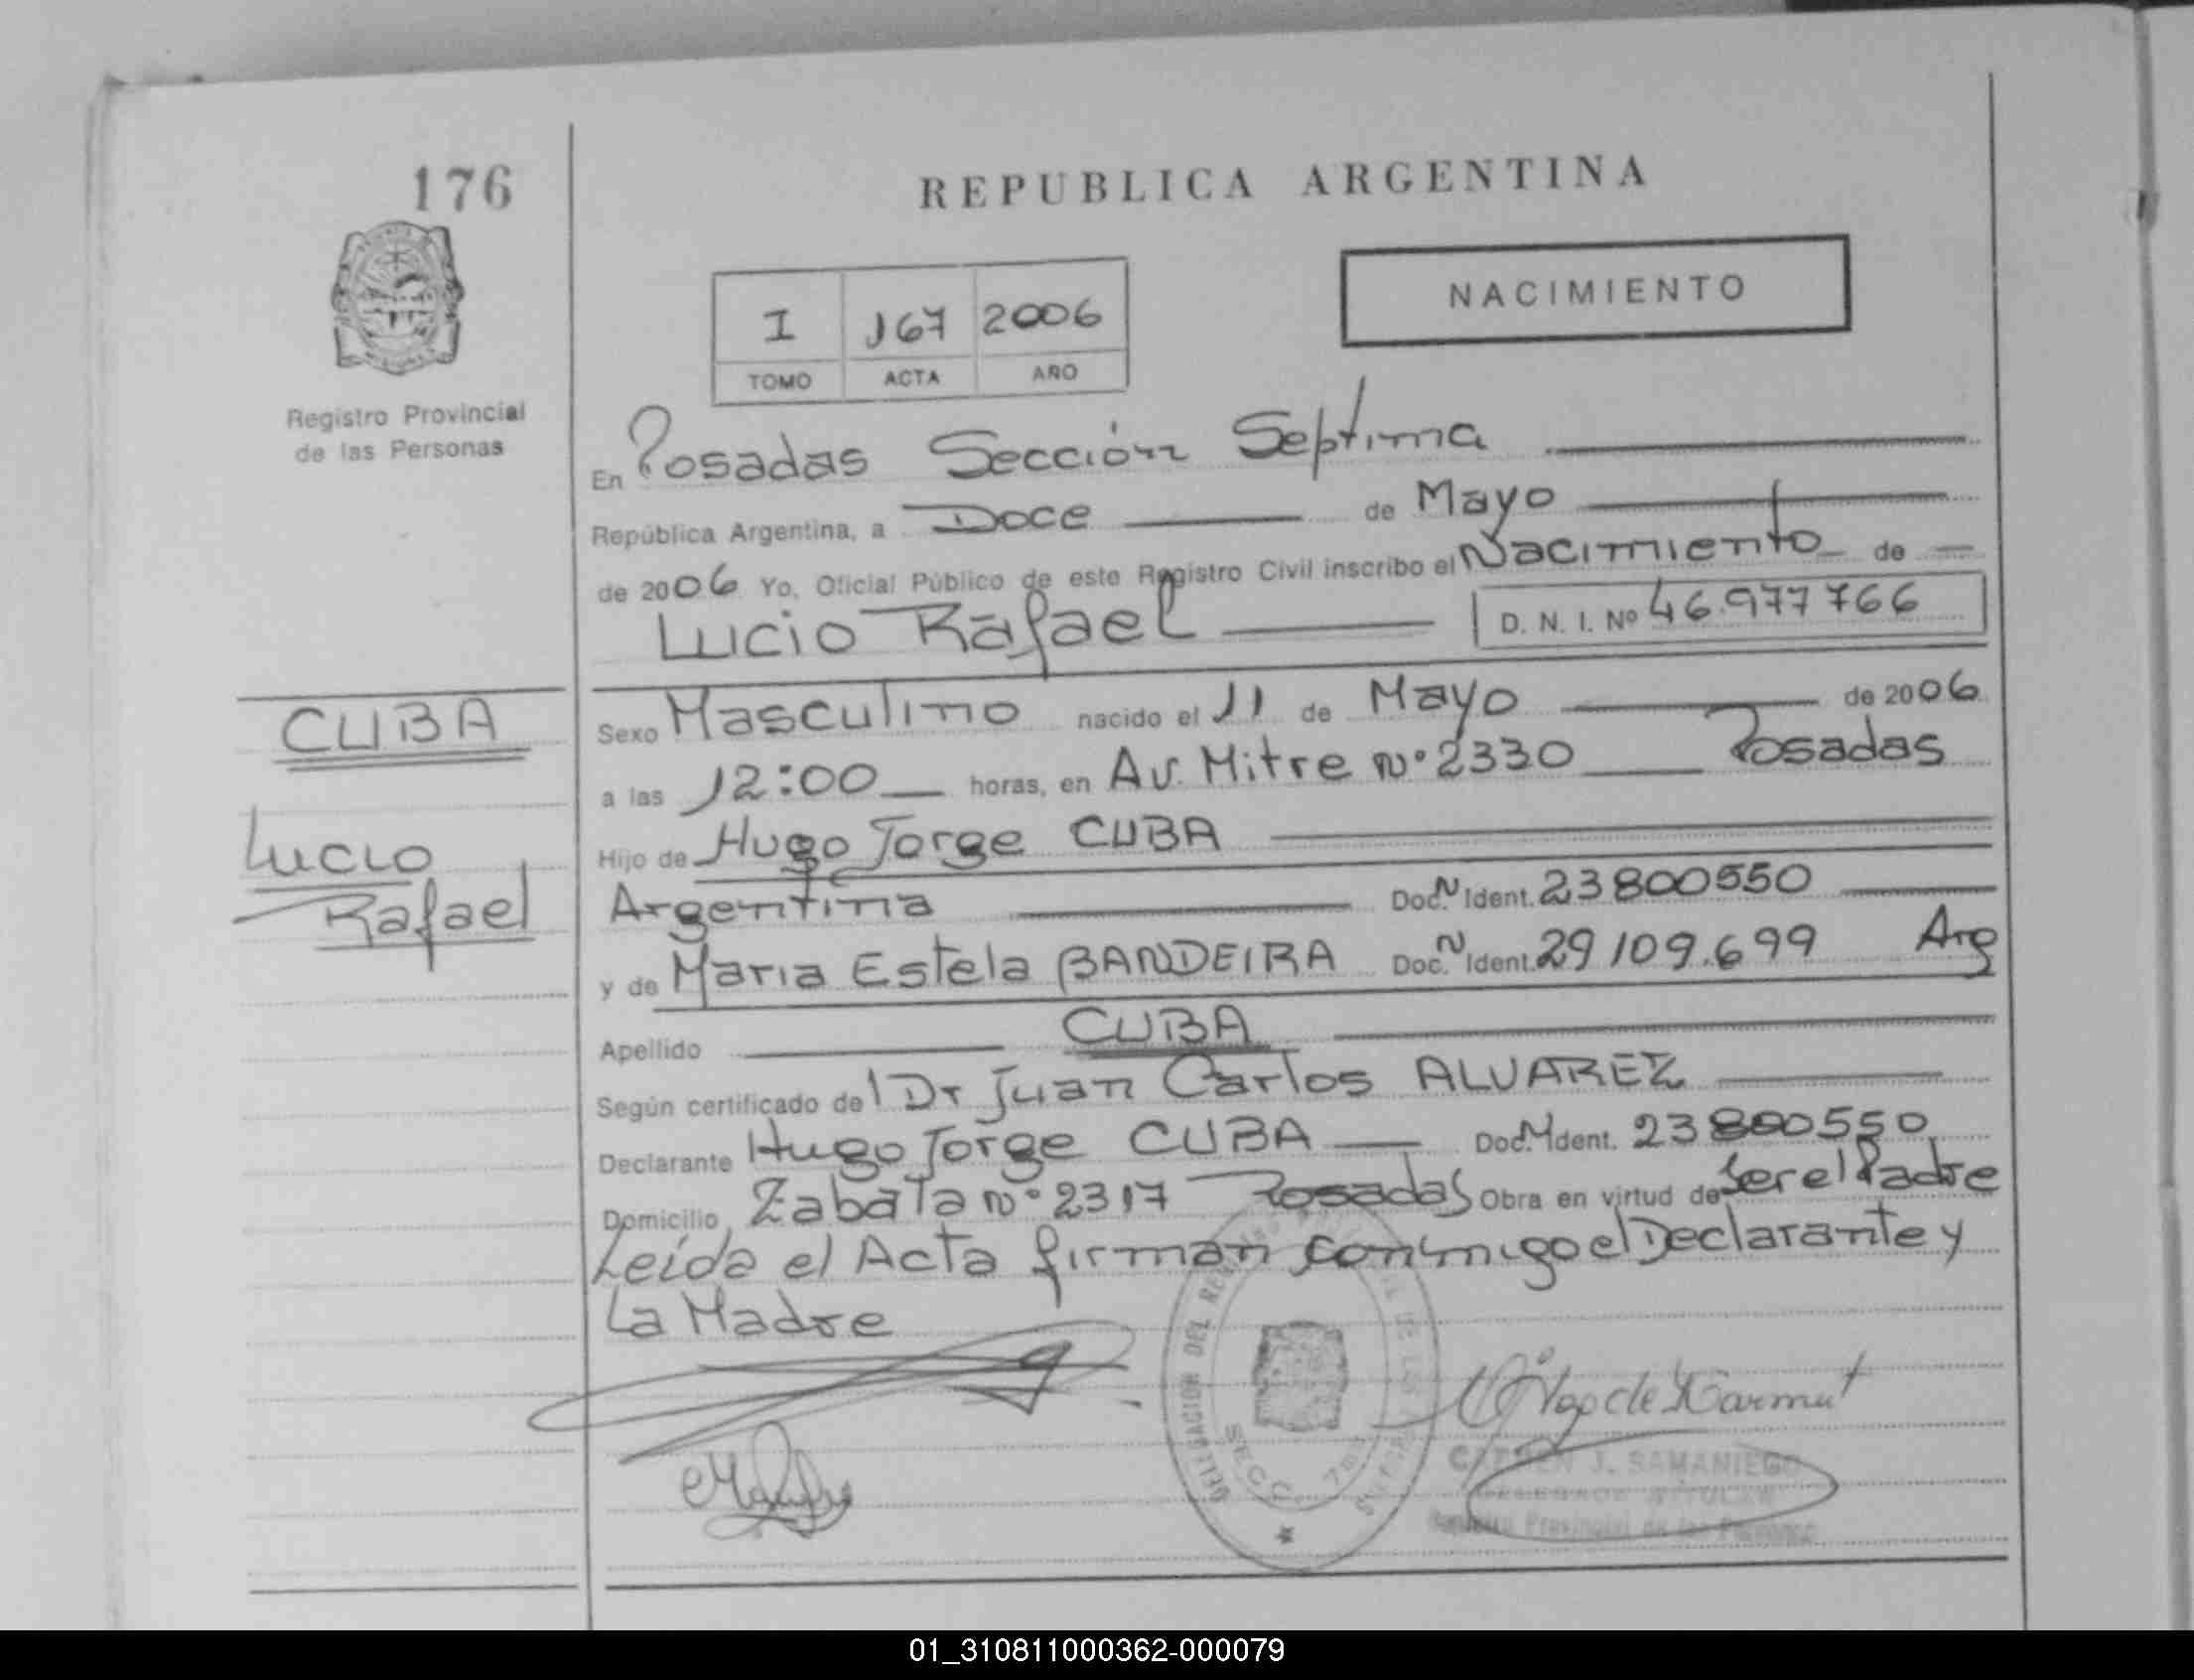 176
REPUBLICA ARGENTINA
NACIMIENTO
I 167 2006
TOMO ACTA AÑO
Registro Provincial
de las Personas
En Posadas Sección Septima
República Argentina, a Doce de Mayo
de 2006 Yo, Oficial Público de este Registro Civil inscribo el Nacimiento de
Lucio Rafael D. N. I. Nº 46.977766
CUBA
Lucio
Rafael
Sexo Masculino nacido el 11 de Mayo de 2006
a las 12:00 horas, en Av. Mitre Nº 2330 Posadas
Hijo de Hugo Jorge CUBA
Argentina Doc. N Ident. 23800550
y de Maria Estela BANDEIRA Doc. N Ident. 29109.699 Arg
Apellido CUBA
Según certificado del Dr Juan Carlos ALVAREZ
Declarante Hugo Jorge CUBA Doc. N Ident. 23800550
Domicilio Zabala Nº 2317 Posadas Obra en virtud de Ser el Padre
Leída el Acta firman conmigo el Declarante y
La Madre
DELEGACION DEL
SECC. 7ma
J. SAMANIEGO
Registro Provincial de las Personas
01_310811000362-000079